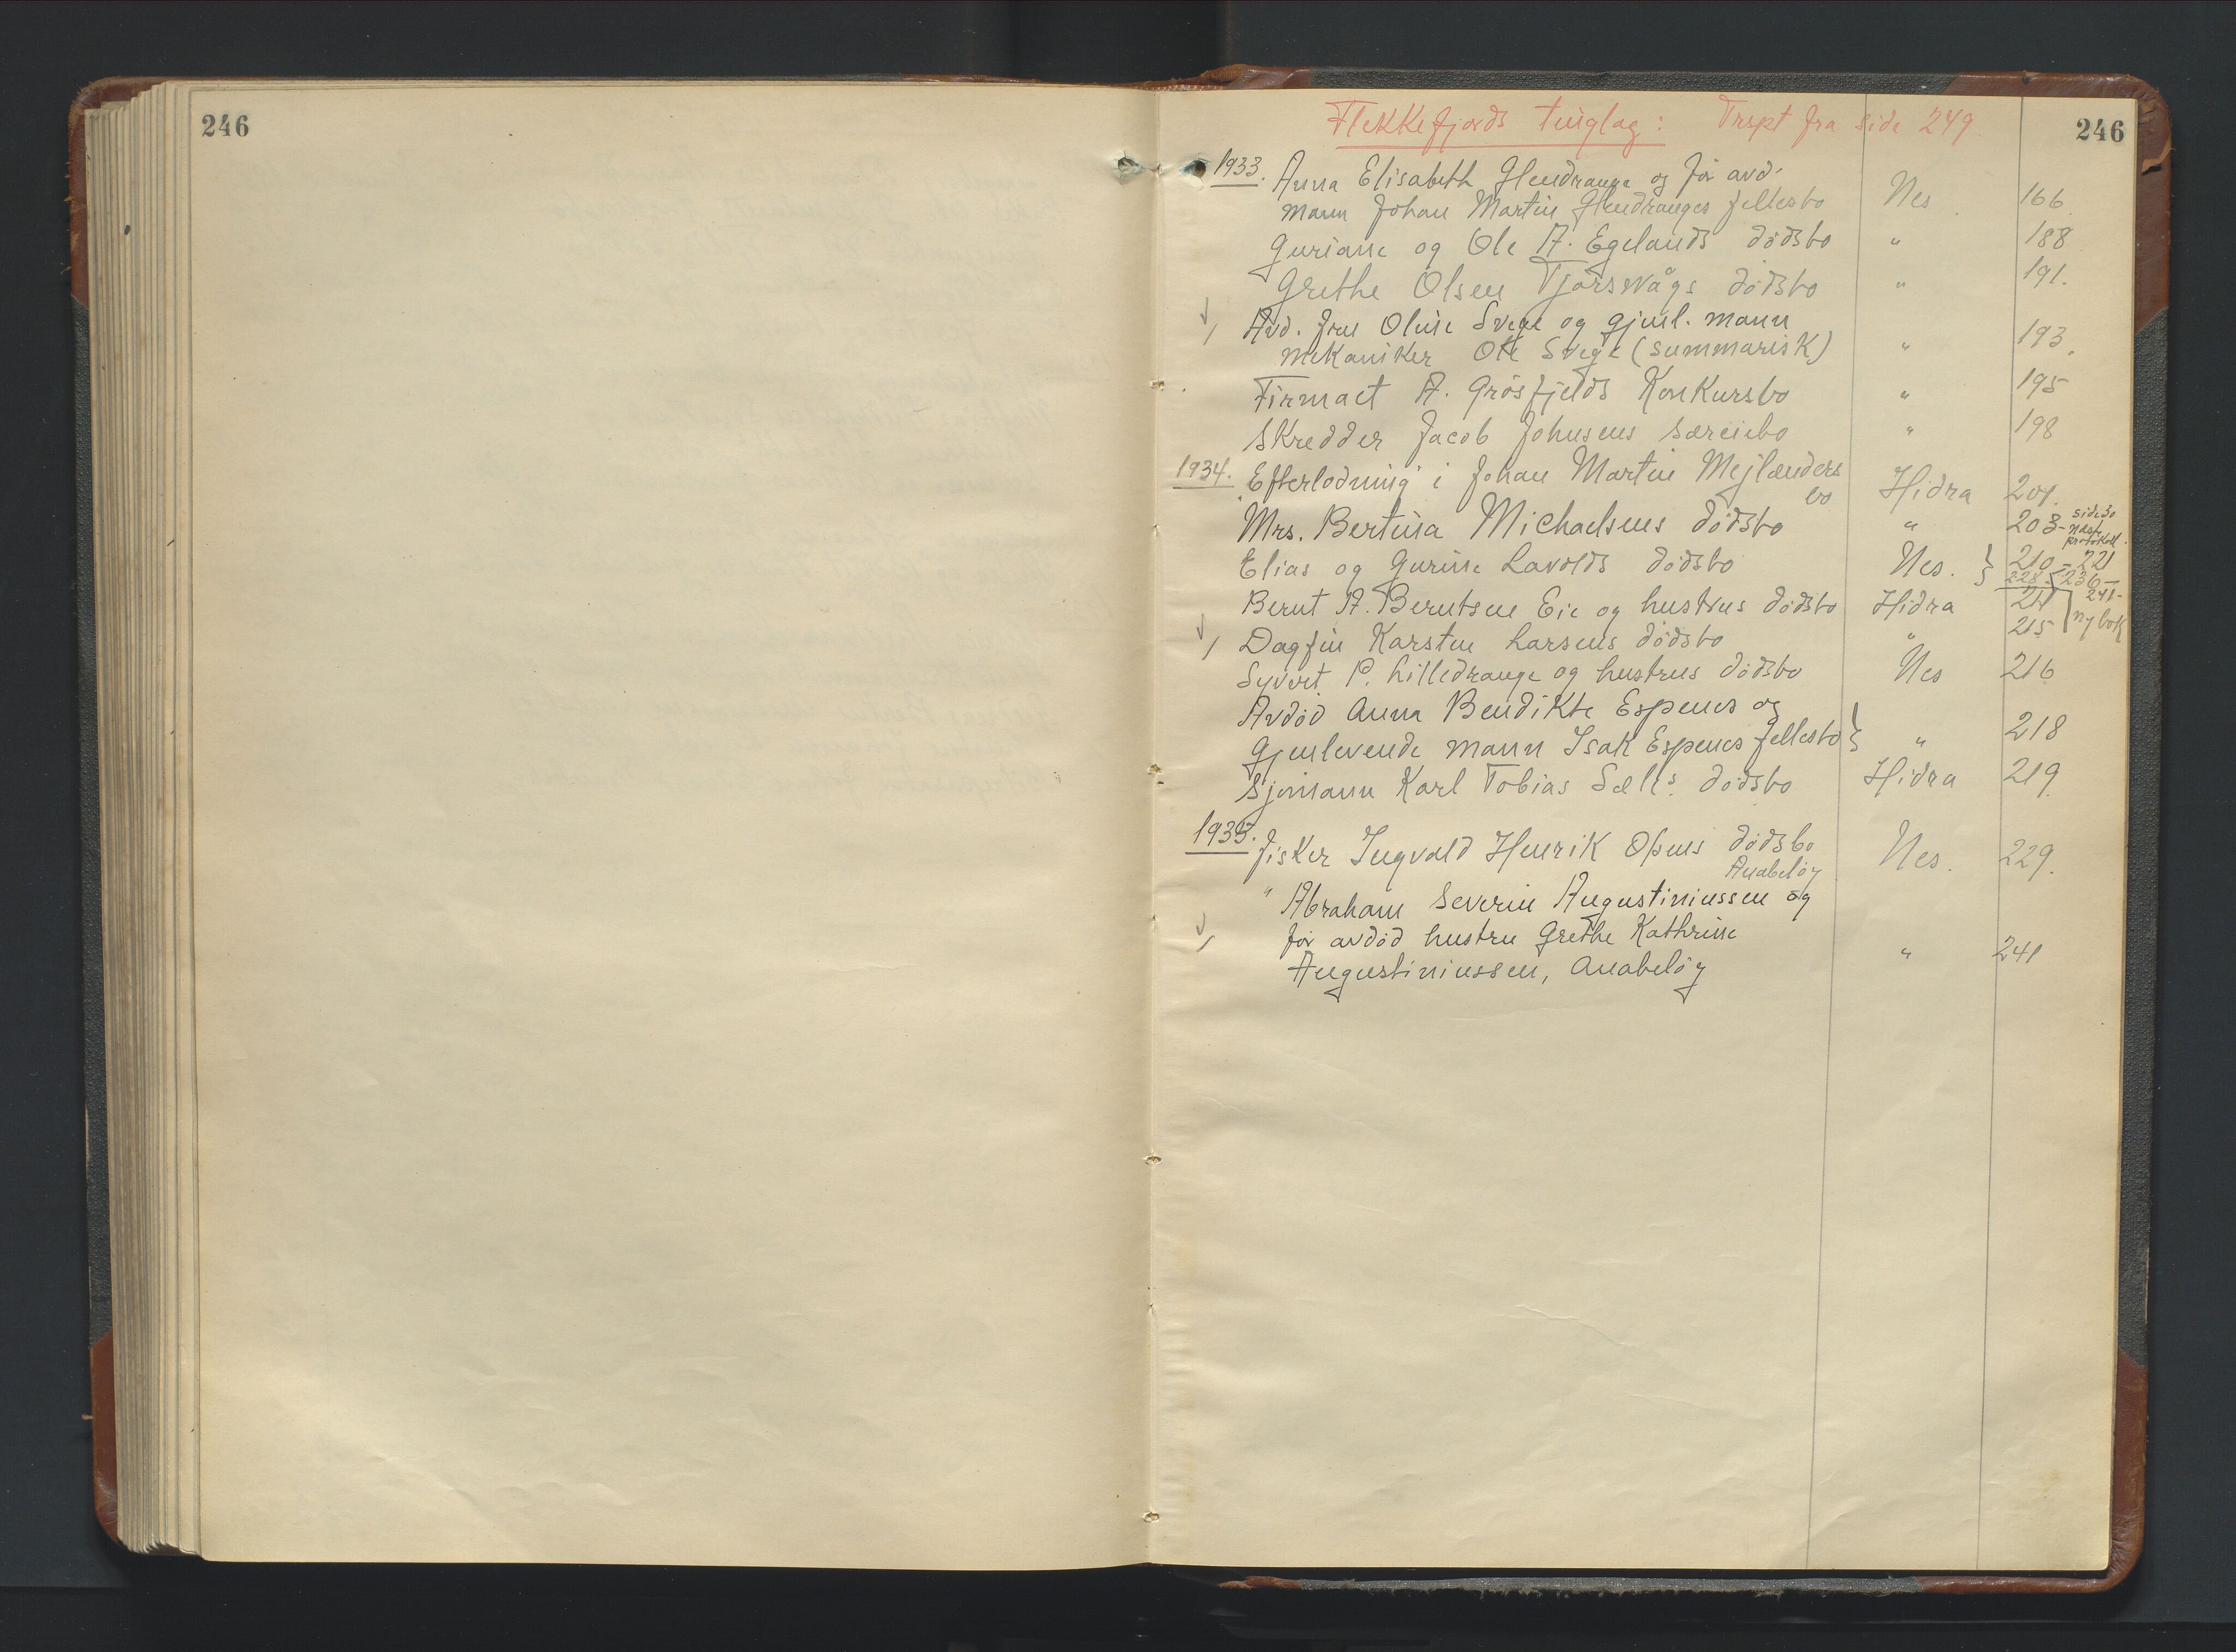 246
Flekkefjords tinglag: Trspt fra side 249
246
1933. Anna Elisabeth Glendrange og før avd.
mann Johan Martin Glendranges fellesbo Nes 166
Guriane og Ole A. Egelands dødsbo " 188
Grethe Olsen Tjørsvågs dødsbo " 191.
Avd. fru Oline Svege og gjenl. mann
mekaniker Ole Svege (summarisk) " 193
Firmaet A. Grøsfjelds Konkursbo " 195
Skredder Jacob Johnsens særeiebo " 198
1934. Efterlodning i Johan Martin Mejlænders
bo Hidra 201.
Mrs. Bertina Michaelsens dødsbo " 203- side 30
næste
protokoll.
Elias og Gurine Lavolds dødsbo Nes. } 210-221
228-236-
241-
ny bok
Bernt A. Berntsen Eie og hustrus dødsbo Hidra 211
Dagfin Karsten Larsens dødsbo " 215
Syvert P. Lilledrange og hustrus dødsbo Nes 216
Avdød Anna Bendikte Espenes og
Gjenlevende mann Isak Espenes fellesbo } " 218
Sjømann Karl Tobias dødsbo Hidra 219.
1935. fisker Ingvald Henrik dødsbo Nes. 229.
Anabeløy
" Abraham Severin Augustiniussen og
før avdød hustru Grethe Kathrine
Augustiniussen, Anabeløy " 241